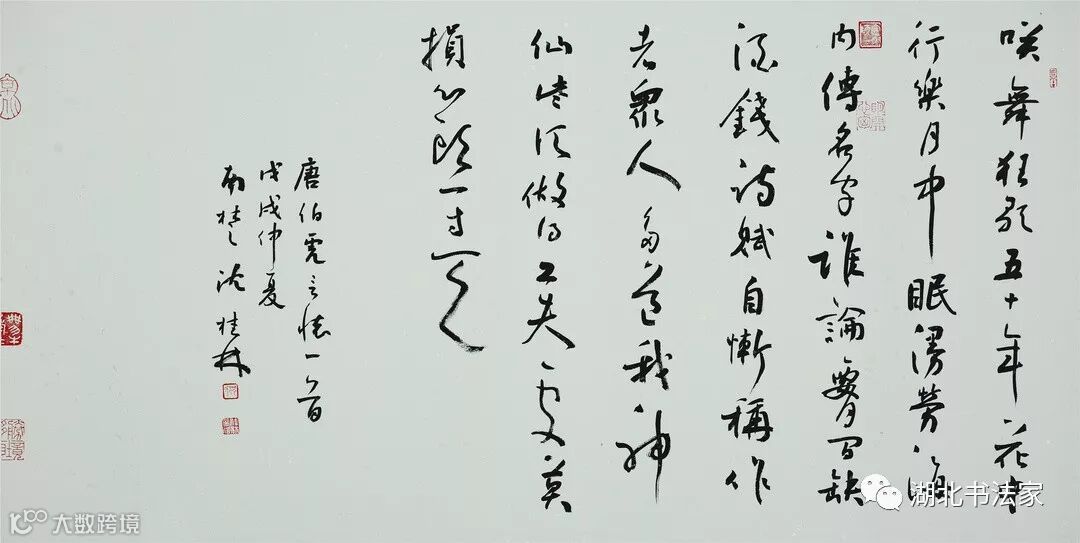 咲舞狂歌五十年花中
行樂月中眠漫勞海
内傳名字誰論腰間缺
酒錢詩賦自慚稱作
者眾人多道我神
仙些須做得工夫處莫
損心頭一寸天
唐伯虎言懷一首
戊戌仲夏
南楚沈桂林
湖北书法家
大数跨境